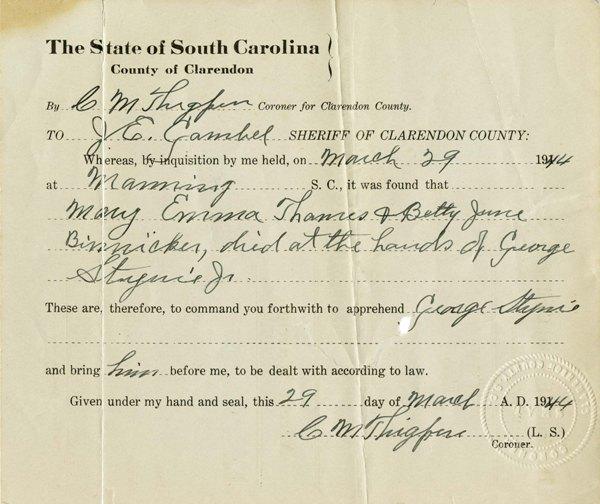 The State of South Carolina
County of Clarendon
By C M Thigpen Coroner for Clarendon County.
TO J. E. Gambel SHERIFF OF CLARENDON COUNTY:
Whereas, by inquisition by me held, on March 29 1944
at Manning S. C., it was found that
Mary Emma Thames & Betty June
Binnicker, died at the hands of George
Stynie Jr.
These are, therefore, to command you forthwith to apprehend George Stynie
and bring him before me, to be dealt with according to law.
Given under my hand and seal, this 29 day of March A. D. 1944
C M Thigpen (L. S.)
Coroner.